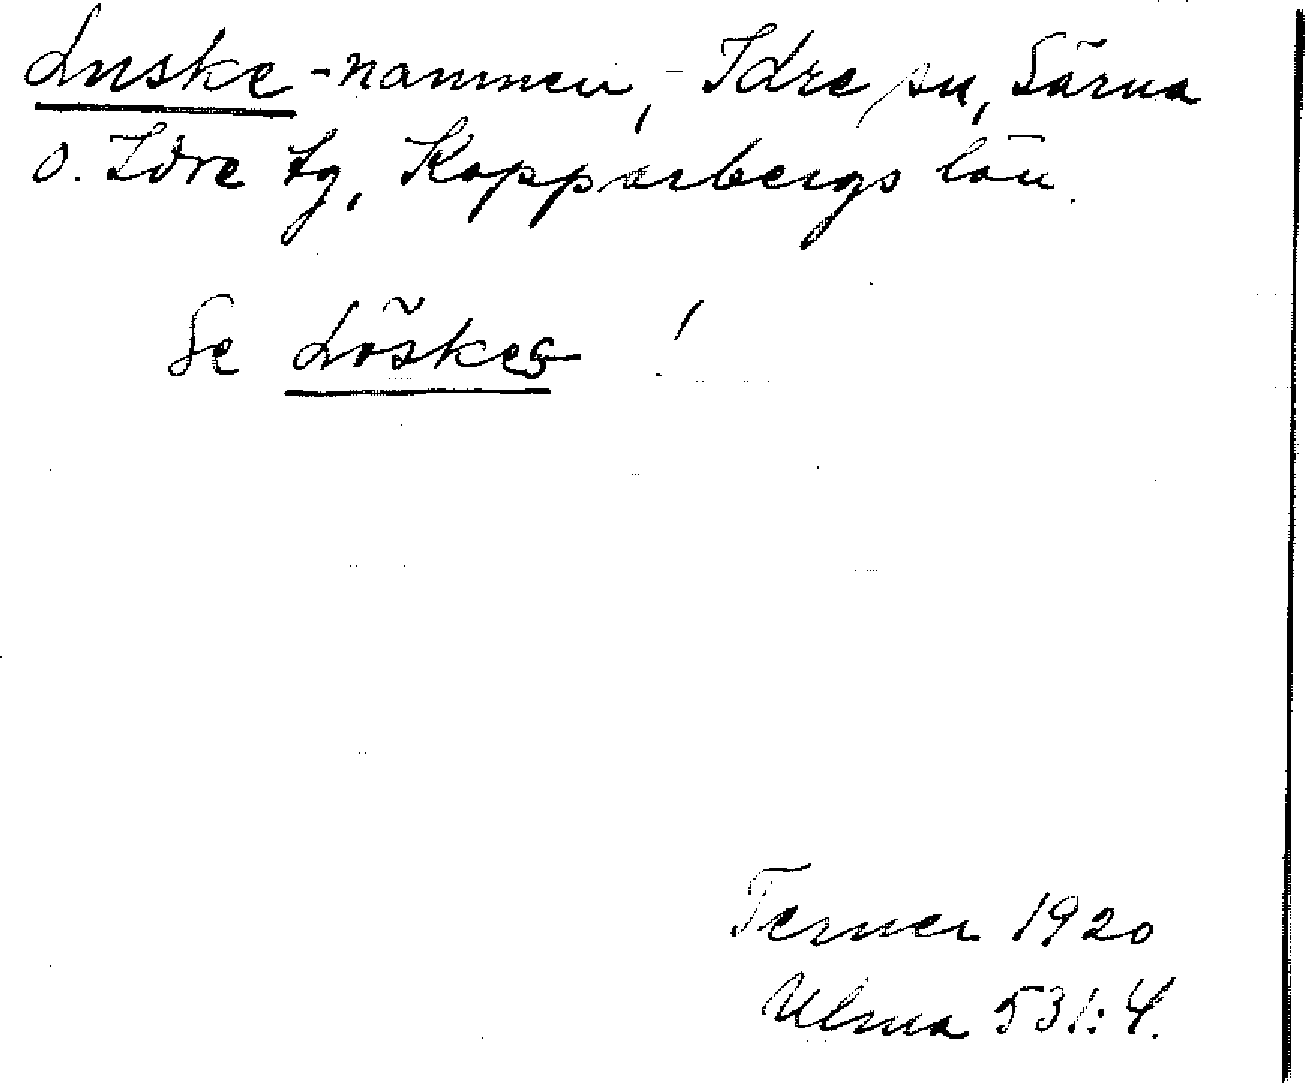 Luske-namnen, - Idre sn, Särna
o. Idre tg, Kopparbergs län.
Se Löskes !
Terner 1920
Ulma 531:4.